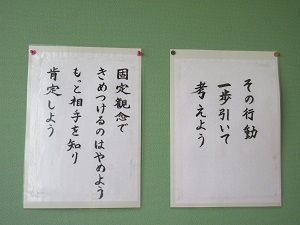 その行動
一歩引いて
考えよう
固定観念で
きめつけるのはやめよう
もっと相手を知り
肯定しよう